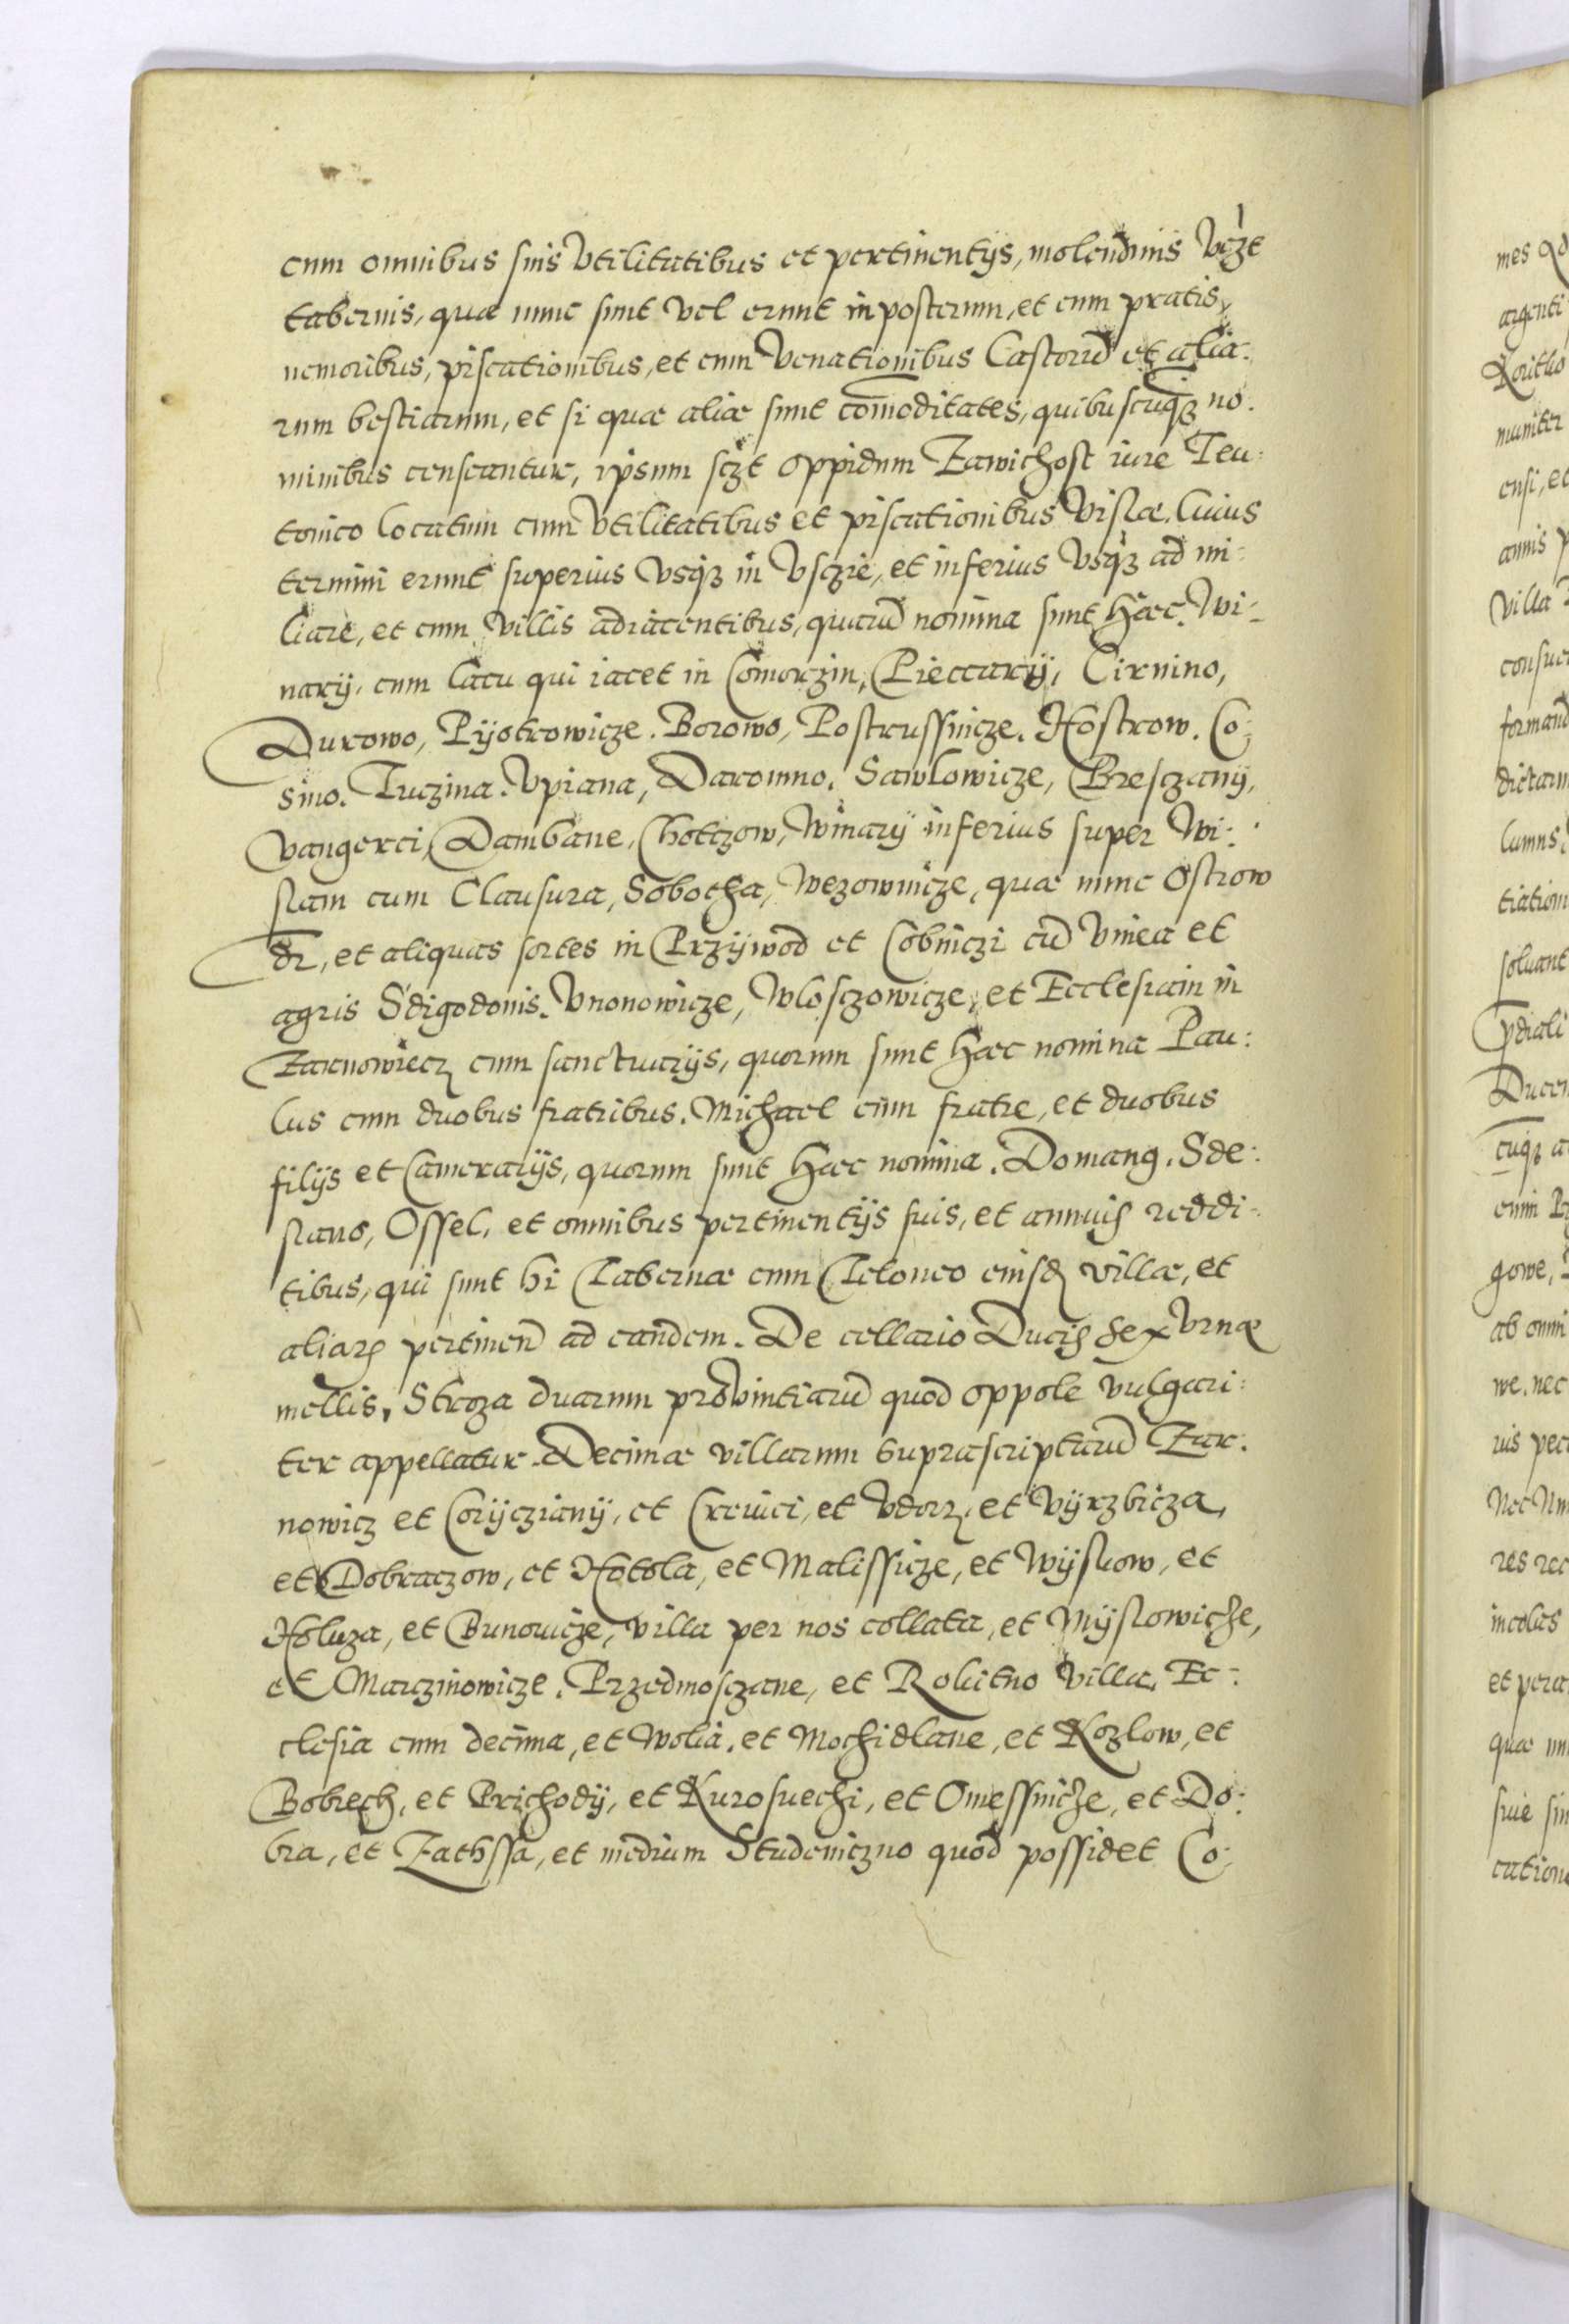 cum omnibus suis Vtilitatibus et pertinentijs, molendinis Vczt
tabernis, quæ nunc sunt vel erunt in posterum, et cum pratis,
nemoribus, piscationibus, et cum Venationibus Castorū et alia:
rum bestiarum, et si quæ aliæ sunt com̄oditates, quibuscuqȝ no:
minibus censeantur, ipsum sczt oppidum Zawichost iure Teu:
tonico locatum cum Vtilitatibus et piscationibus Vislæ. Cuius
termini erunt superius Vsqȝ in Vsczie, et inferius Vsqȝ ad mi:
liare, et cum villis adiacentibus, quarū nomina sunt hæc. Wi:
nary, cum lacu qui iacet in Comorzin, Pieccarÿ, Cirnino,
Durowo, Pÿotrowicze. Borowo, Postrussnicze. Hostrow. Co:
sino. Tuczina. Vpiana, Daromno. Sawlowicze, Bresczanÿ,
Vangerci, Dambane, Chotczow, Winarÿ inferius super Wi:
slam cum Clausura, Sobotha, Wezownicze, quæ nunc Ostrow
dr, et aliquas sortes in Przÿwod et Cobniczi cū Vinea et
agris Sdigodonis. Vnonowicze, Wlosczowicze, et Ecclesiam in
Zarnowiecz cum sanctuarÿs, quorum sunt hæc nomina Pau:
lus cum duobus fratribus. Michael cum fratre, et duobus
filÿs et Camerarÿs, quorum sunt hæc nomina. Domang. Sde:
slaus, Ossel, et omnibus pertinentÿs suis, et annuis reddi:
tibus, qui sunt hi Tabernæ cum Teloneo eiusd villæ, et
aliarȝ pertinen̄ ad eandem. De cellario Ducis sex Vrnæ
mellis, Stroza duarum prouintiarū quod oppole vulgari:
ter appellatur. Decimæ villarum suprascriptarū Zar:
nowicz et Corÿczianÿ, et Creuici, et Vdorz, et Vÿrzbicza,
et Dobraczow, et Hotola, et Malissicze, et Wÿslow, et
Holuza, et Bunowicze, villa per nos collata, et Mÿslowicze,
et Marczinowicze. Przedmosczane, et Rokitno Villa. Ec:
clesia cum decima, et Wolia. et Mochidlane, et Kozlow, et
Bobrech, et Prichodÿ, et Kurosuechi, et Omessnicze, et Do:
bra, et Zathssa, et medium Studeniczno quod possidet Co: